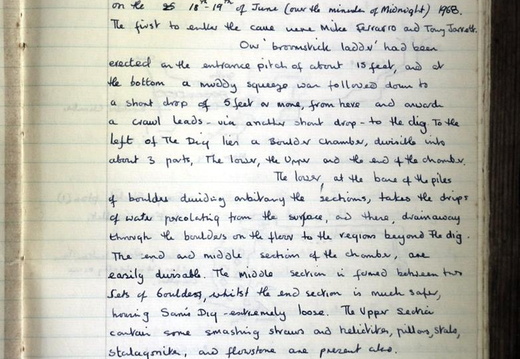 on the 25 18th 19th of June (over the minutes of Midnight) 1968.
The first to enter the cave were Mike Ferraro and Tony Jarratt.
Our 'broomstick ladder' had been
erected on the entrance pitch of about 15 feet, and at
the bottom a muddy squeeze was followed down to
a short drop of 5 feet or more, from here and onwards
a crawl leads - via another short drop - to the dig. To the
left of The Dig lies a Boulder Chamber, divisible into
about 3 parts, The lower, the Upper and the end of the chamber.
The lower, at the base of the piles
of boulders dividing arbitrary the sections, takes the drips
of water percolating from the surface, and there, drain away
through the boulders on the floor to the regions beyond the dig.
The end and middle section of the chamber, are
easily divisable. The middle section is formed between two
sets of boulders, whilst the end section is much safer,
having Sam's Dig - extremely loose. The Upper Section
contain some smashing straws and helictites, pillars, stals,
stalagmite, and flowstone are present also.